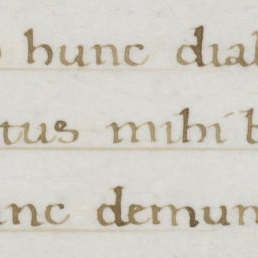 hunc dial
tus mihi b
nc demum